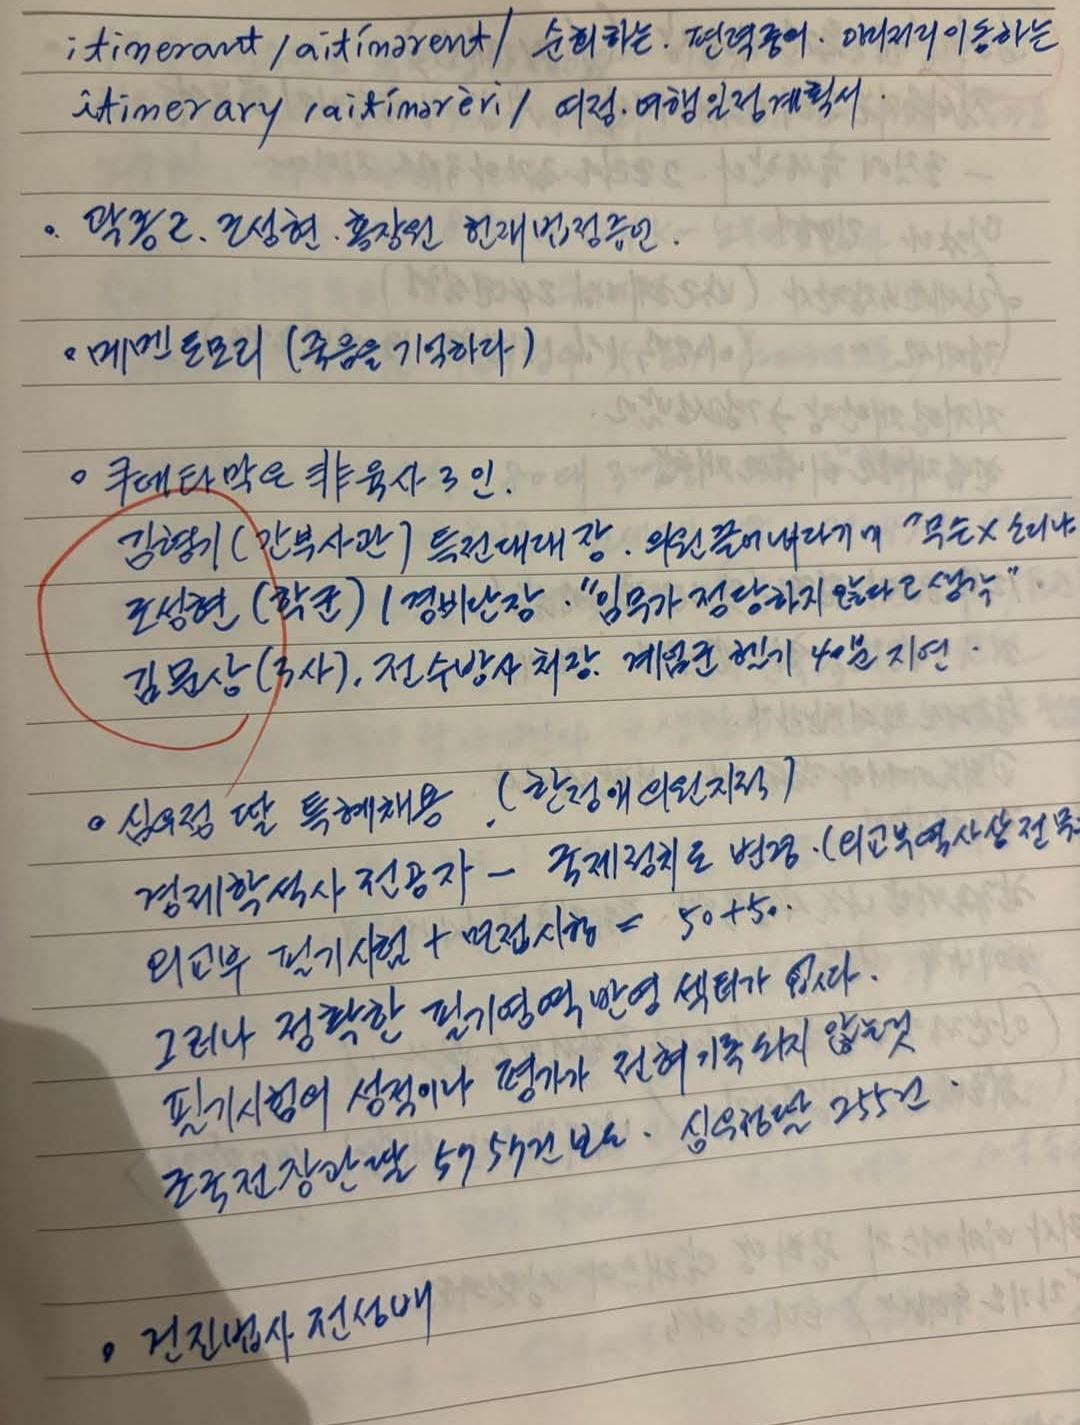 itinerant /aitínərənt/ 순회하는. 편력중에. 이리저리 이동하는
itinerary /aitínərèri/ 여정. 여행일정계획서.
• 곽종근. 조성현. 홍장원 헌재법정증인.
• 메멘토모리 (죽음을 기억하다)
• 쿠데타 막은 非육사 3인.
김형기 (간부사관) 특전대대장. 의원 끌어내라기에 "무슨 X 소리냐
조성현 (학군) 1경비단장. "임무가 정당하지 않다고 생각".
김문상 (3사). 전수방사 처장. 계엄군 헬기 40분 지연.
• 심우정 딸 특혜채용. (한정애 의원지적)
경제학석사 전공자 - 국제정치로 변경. (외교부역사상 전무
외교부 필기시험 + 면접시험 = 50+50.
그러나 정확한 필기영역 반영 섹터가 없다.
필기시험에 성적이나 평가가 전혀 기록되지 않는것
조국전장관딸 5954건 보도. 심우정딸 255건.
• 건진법사 전성배